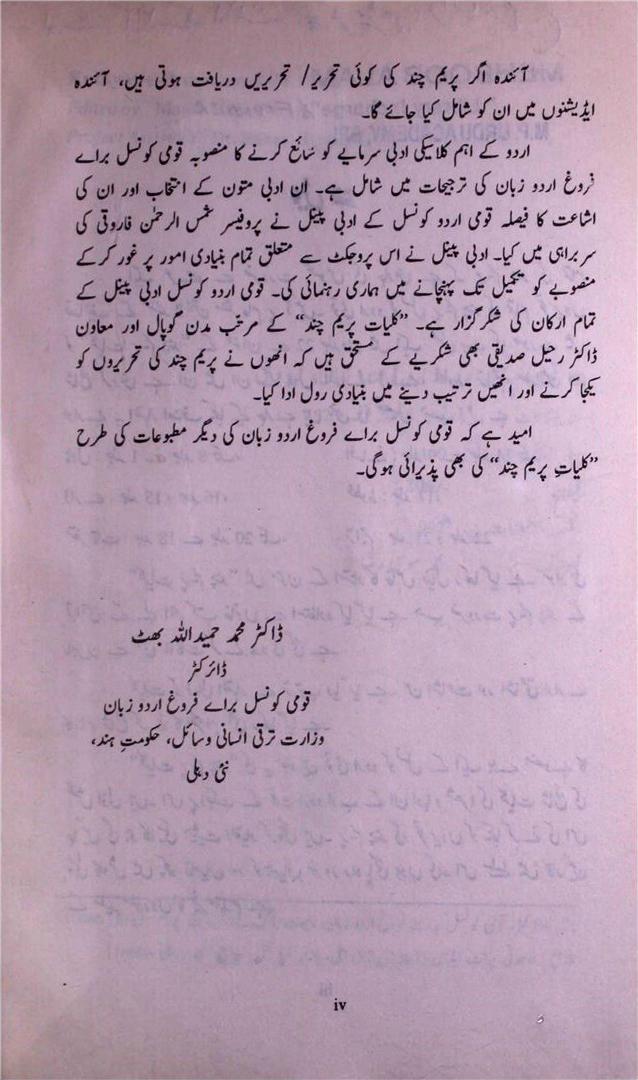 آئندہ اگر پریم چند کی کوئی تحریر/ تحریریں دریافت ہوتی ہیں، آئندہ
ایڈیشنوں میں ان کو شامل کیا جائے گا۔
اردو کے اہم کلاسیکی ادبی سرمایے کو سائع کرنے کا منصوبہ قومی کونسل برائے
فروغ اردو زبان کی ترجیحات میں شامل ہے۔ ان ادبی متون کے انتخاب اور ان کی
اشاعت کا فیصلہ قومی اردو کونسل کے ادبی پینل نے پروفیسر شمس الرحمٰن فاروقی کی
سربراہی میں کیا۔ ادبی پینل نے اس پروجکٹ سے متعلق تمام بنیادی امور پر غور کرکے
منصوبے کو تکمیل تک پہنچانے میں ہماری رہنمائی کی۔ قومی اردو کونسل ادبی پینل کے
تمام ارکان کی شکرگزار ہے۔ ”کلیات پریم چند“ کے مرتب مدن گوپال اور معاون
ڈاکٹر رحیل صدیقی بھی شکریے کے مستحق ہیں کہ انھوں نے پریم چند کی تحریروں کو
یکجا کرنے اور انھیں ترتیب دینے میں بنیادی رول ادا کیا۔
امید ہے کہ قومی کونسل برائے فروغ اردو زبان کی دیگر مطبوعات کی طرح
”کلیاتِ پریم چند“ کی بھی پذیرائی ہوگی۔
ڈاکٹر محمد حمیداللہ بھٹ
ڈائرکٹر
قومی کونسل برائے فروغ اردو زبان
وزارت ترقی انسانی وسائل، حکومتِ ہند،
نئی دہلی
iv